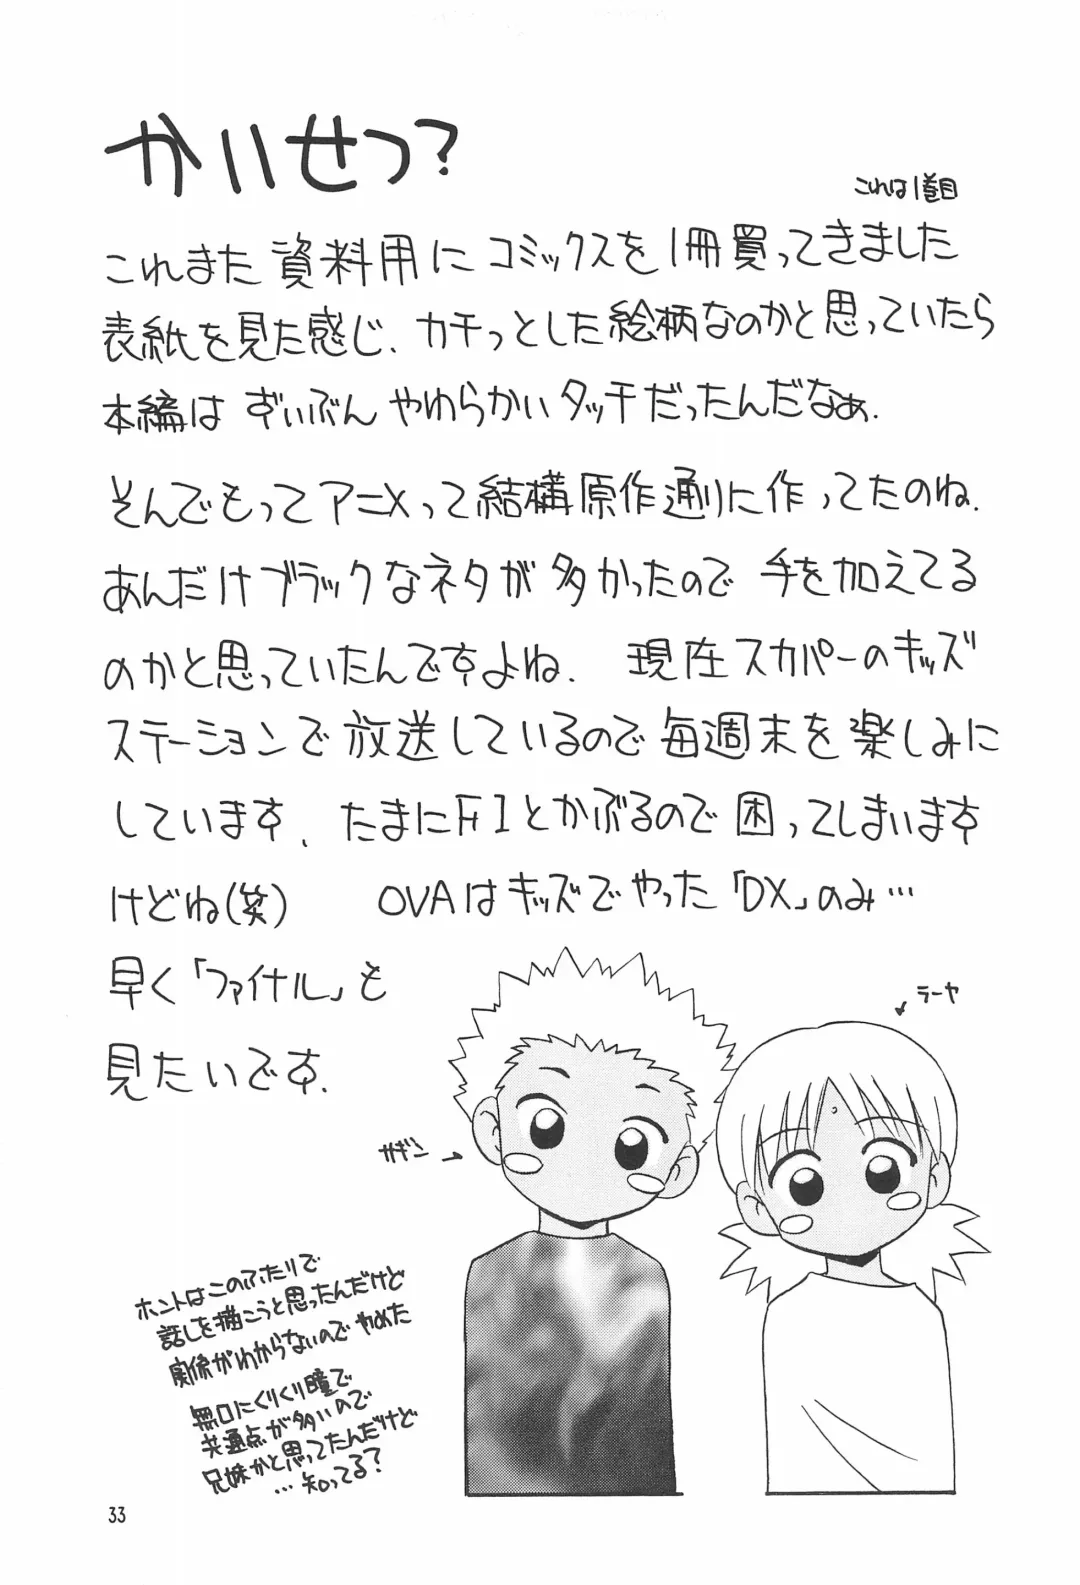 かいせつ?
これは1巻目
これまた資料用にコミックスを1冊買ってきました
表紙を見た感じ、カチっとした絵柄なのかと思っていたら
本編はずいぶんやわらかいタッチだったんだなぁ.
そんでもってアニメって結構原作通りに作ってたのね.
あんだけブラックなネタが多かったので手を加えてる
のかと思っていたんですよね. 現在スカパーのキッズ
ステーションで放送しているので毎週末を楽しみに
しています、たまにF1とかぶるので困ってしまいます
けどね(笑) OVAはキッズでやった「DX」のみ…
早く「ファイナル」も
見たいです.
ラーヤ
ガギン
ホントはこのふたりで
話しを描こうと思ったんだけど
実像がわからないのでやめた
無口にくりくり瞳で
共通点が多いので
兄妹かと思ってたんだけど
…知ってる?
33